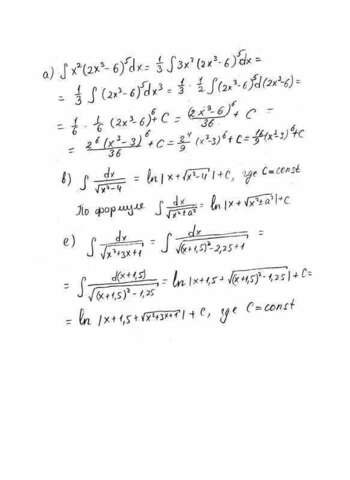 a) ∫ x²(2x³-6)⁵dx = 1/3 ∫ 3x²(2x³-6)⁵dx =
= 1/3 ∫ (2x³-6)⁵dx³ = 1/3 · 1/2 ∫ (2x³-6)⁵d(2x³-6) =
= 1/6 · 1/6 (2x³-6)⁶ + C = (2x³-6)⁶/36 + C =
= 2⁶(x³-3)⁶/36 + C = 2⁴/9 (x³-3)⁶ + C = 16/9 (x³-3)⁶ + C
b) ∫ dx/√(x²-4) = ln |x + √(x²-4)| + C, где C = const
По формуле ∫ dx/√(x²±a²) = ln |x + √(x²±a²)| + C
e) ∫ dx/√(x²+3x+1) = ∫ dx/√((x+1,5)²-2,25+1) =
= ∫ d(x+1,5)/√((x+1,5)²-1,25) = ln |x+1,5 + √((x+1,5)²-1,25)| + C =
= ln |x+1,5 + √(x²+3x+1)| + C, где C = const